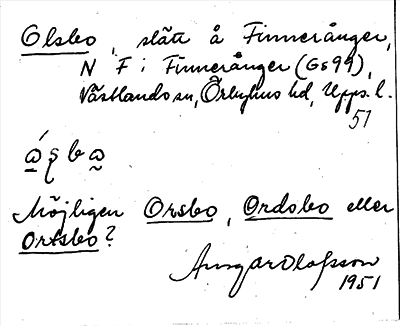 Olsbo, slätt å Finnerånger,
N F i Finnerånger (Gs 99),
Västlands sn, Örbyhus hd, Upps. l.
51
Möjligen Orsbo, Ordsbo eller
Ortsbo?
Ansgar Olofsson
1951